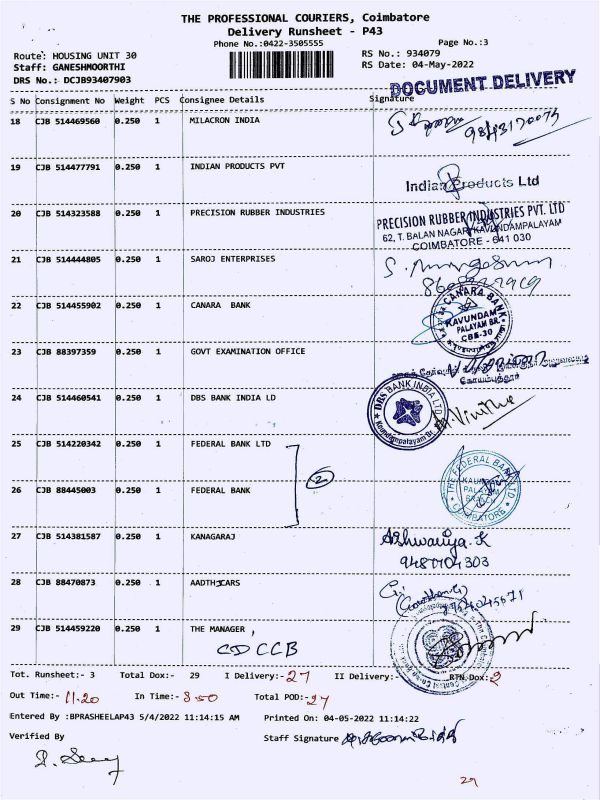 THE PROFESSIONAL COURIERS, Coimbatore
Delivery Runsheet - P43
Phone No.:0422-3505555 Page No.:3
Route: HOUSING UNIT 30 RS No.: 934079
Staff: GANESHMOORTHI RS Date: 04-May-2022
DRS No.: DCJB93407903
DOCUMENT DELIVERY
S No Consignment No Weight PCS Consignee Details Signature
18 CJB 514469560 0.250 1 MILACRON INDIA
19 CJB 514477791 0.250 1 INDIAN PRODUCTS PVT
Indian Products Ltd
20 CJB 514323588 0.250 1 PRECISION RUBBER INDUSTRIES
PRECISION RUBBER INDUSTRIES PVT. LTD
62, T. BALAN NAGAR, KAVUNDAMPALAYAM
COIMBATORE - 641 030
21 CJB 514444805 0.250 1 SAROJ ENTERPRISES
22 CJB 514455902 0.250 1 CANARA BANK
CANARA BANK
KAVUNDAM
PALAYAM BR.
CBE-30
23 CJB 88397359 0.250 1 GOVT EXAMINATION OFFICE
கோயம்புத்தூர்
24 CJB 514460541 0.250 1 DBS BANK INDIA LD
DBS BANK INDIA LTD
Koundampalayam Br.
25 CJB 514220342 0.250 1 FEDERAL BANK LTD
2
26 CJB 88445003 0.250 1 FEDERAL BANK
THE FEDERAL BANK LTD
KAUNDAM
PALAYAM
BRANCH
COIMBATORE
27 CJB 514381587 0.250 1 KANAGARAJ
Ashwariya.K
9487104303
28 CJB 88470873 0.250 1 AADTH CARS
29 CJB 514459220 0.250 1 THE MANAGER ,
CDCCB
Tot. Runsheet:- 3 Total Dox:- 29 I Delivery:- 27 II Delivery:- RTN Dox: 2
Out Time:- 11.20 In Time:- 8.50 Total POD:- 27
Entered By :BPRASHEELAP43 5/4/2022 11:14:15 AM Printed On: 04-05-2022 11:14:22
Verified By Staff Signature
29